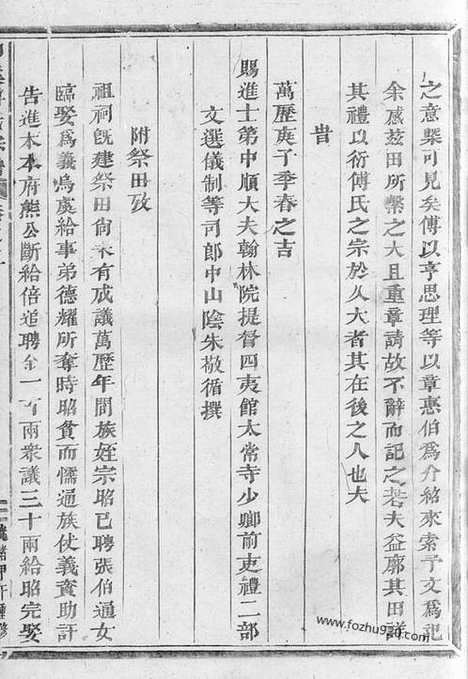 之意槩可見矣傅以亨思理等以章惠伯為介紹來索予文為記
余感茲田所繫之大且重章請故不辭而記之若夫益廓其田詳
其禮以衍傅氏之宗於久大者其在後之人也夫
旹
萬歷庚子季春之吉
賜進士第中順大夫翰林院提督四夷館太常寺少卿前吏禮二部
文選儀制等司郎中山陰朱敬循撰
附祭田攷
祖祠旣建祭田尙未有成議萬歷年間族姪宗昭已聘張伯通女
臨娶為義烏虞給事弟德耀所奪時昭貧而懦通族仗義賫助訐
告進本本府熊公斷給倍追聘金一百兩衆議三十兩給昭完娶
www.fozhu920.com